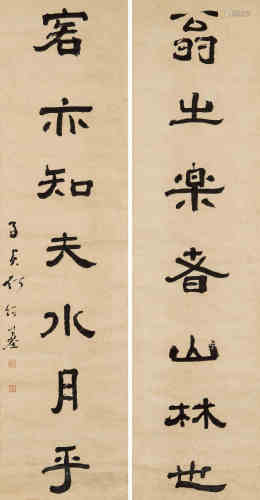 翁之樂者山林也
客亦知夫水月乎
子貞何紹基